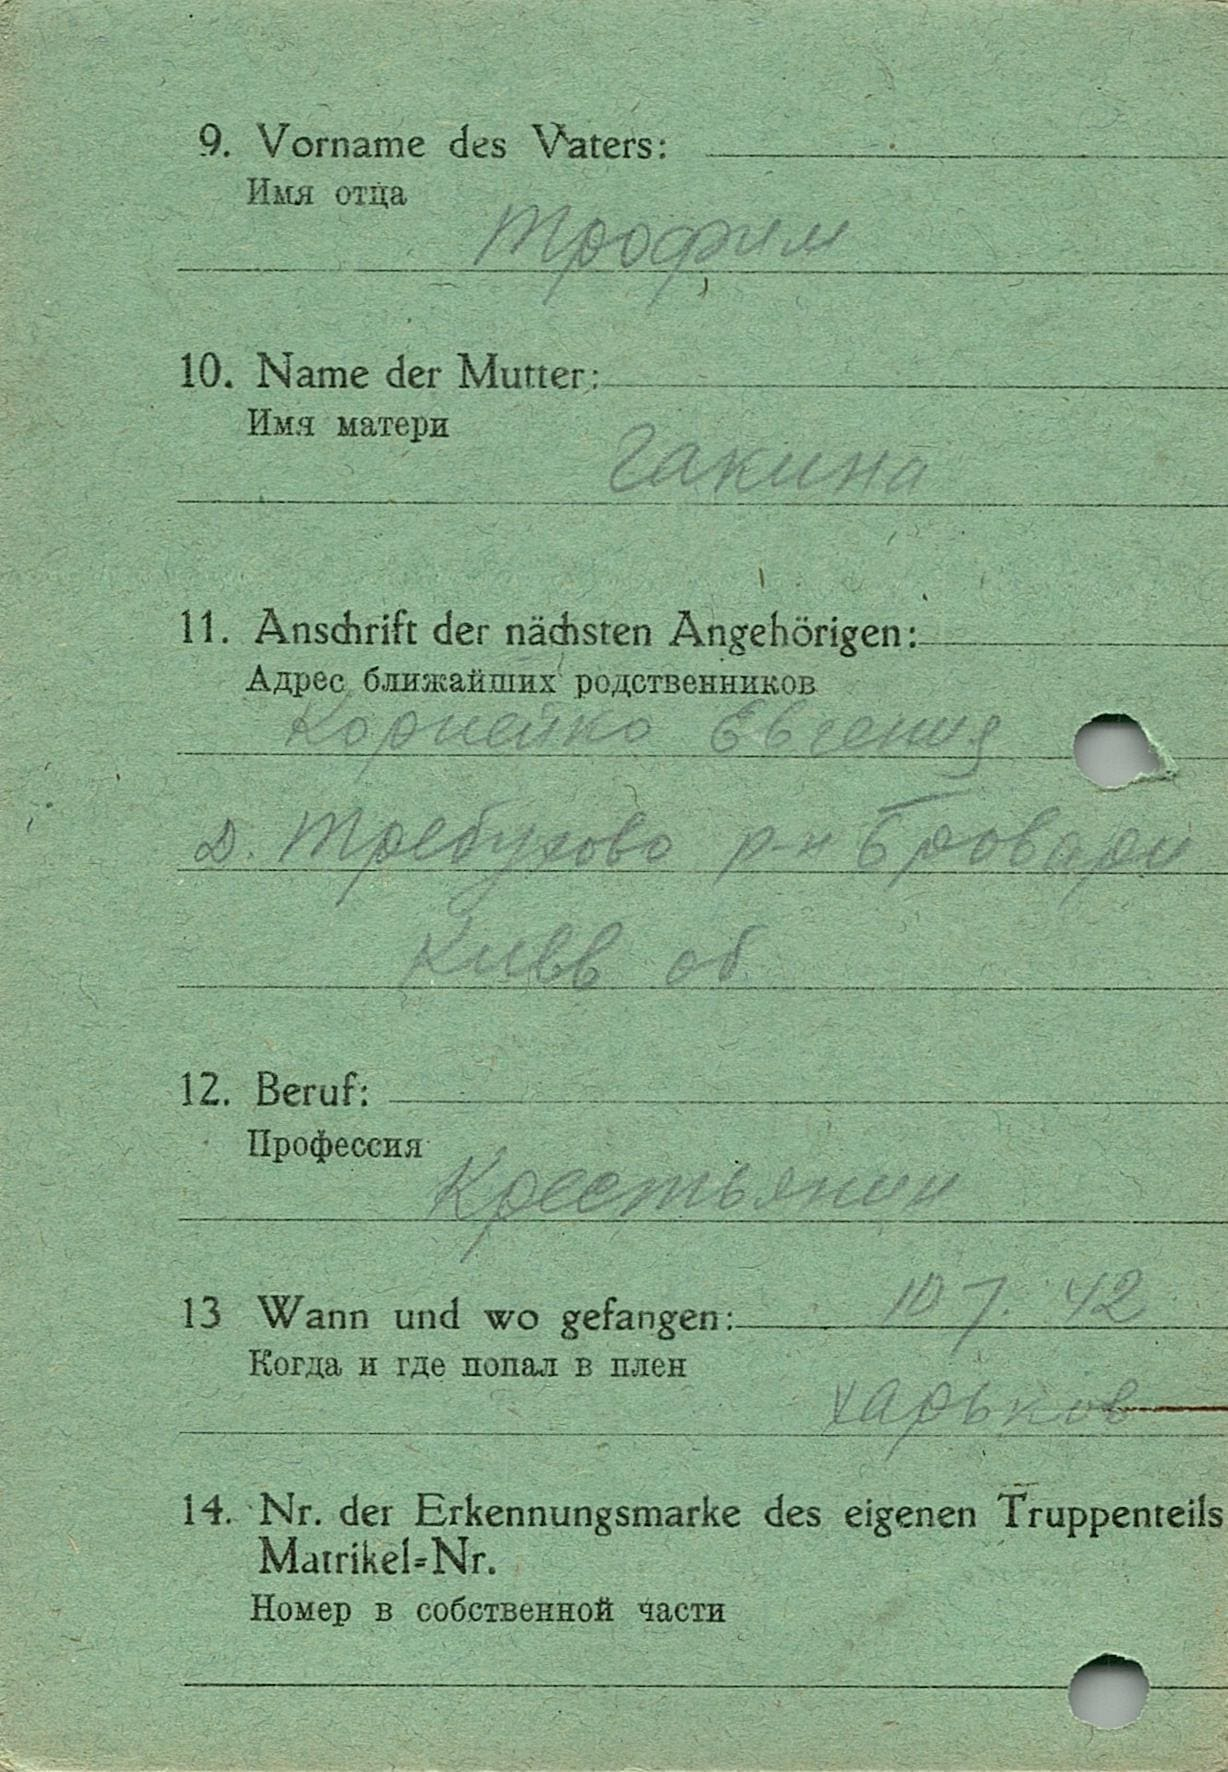 9. Vorname des Vaters:
Имя отца
Трофим
10. Name der Mutter:
Имя матери
Гакина
11. Anschrift der nächsten Angehörigen:
Адрес ближайших родственников
Корнейко Евгения
д. Требухово р-н Бровари
Киев об
12. Beruf:
Профессия
Крестьянин
13 Wann und wo gefangen:
10 7. 42
Когда и где попал в плен
Харьков
14. Nr. der Erkennungsmarke des eigenen Truppenteils
Matrikel-Nr.
Номер в собственной части